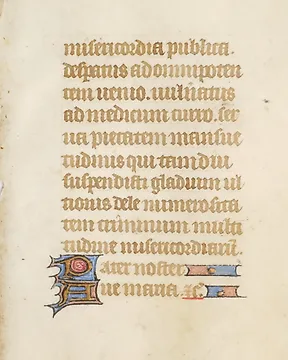 misericordia publica.
desperatus ad omnipoten
tem uenio. uulneratus
ad medicum curro. ser
ua pietatem mansue
tudinis qui tam diu
suspendisti gladium ul
tionis dele numerosita
tem criminum multi
tudine misericordiarum.
Pater noster
Aue maria. &c.